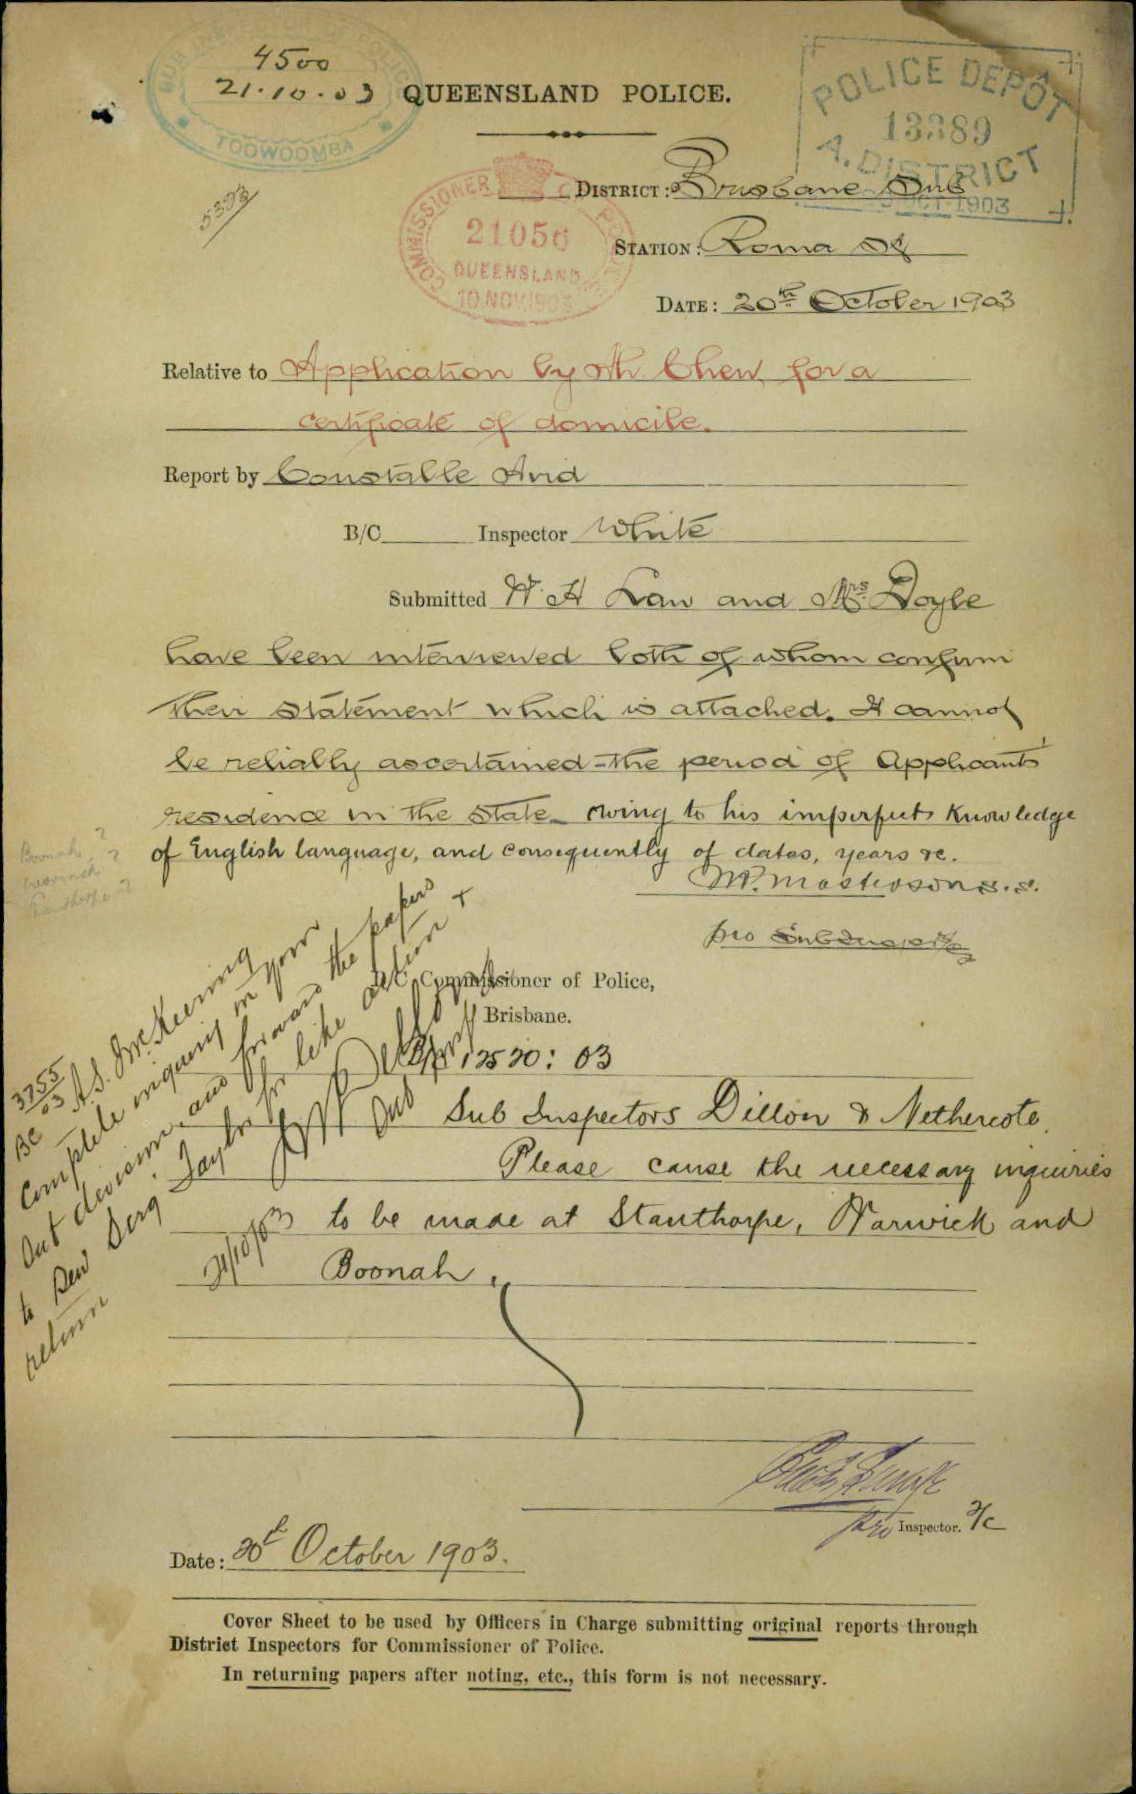 4500
21.10.03
TOOWOOMBA
QUEENSLAND POLICE.
POLICE DEPÔT
13389
A. DISTRICT
OCT 1903
COMMISSIONER
21056
QUEENSLAND
10 NOV 1903
DISTRICT: Brisbane Sub
STATION: Roma St
DATE: 20th October 1903
Relative to Application by Ah Chew for a
certificate of domicile.
Report by Constable Arid
B/C Inspector White
Submitted W. H Law and Mrs. Doyle
have been interviewed both of whom confirm
their statement which is attached. It cannot
be reliably ascertained the period of Applicants'
residence in the State owing to his imperfect knowledge
of English language, and consequently of dates, years &c.
M. Masterson S. S.
pro Sub Inspector
Boonah ?
Warwick ?
Stanthorpe ?
Commissioner of Police,
Brisbane.
12520: 03
Sub Inspectors Dillon & Nethercote.
Please cause the necessary inquiries
to be made at Stanthorpe, Warwick and
Boonah.
3755
03
BC A.S. McKeering
complete inquiry in your
out division, and forward the papers
to Sen Serg. Taylor for like action +
return
Sub Insp
21/10/03
pro Inspector. 2/c
Date: 20th October 1903.
Cover Sheet to be used by Officers in Charge submitting original reports through
District Inspectors for Commissioner of Police.
In returning papers after noting, etc., this form is not necessary.